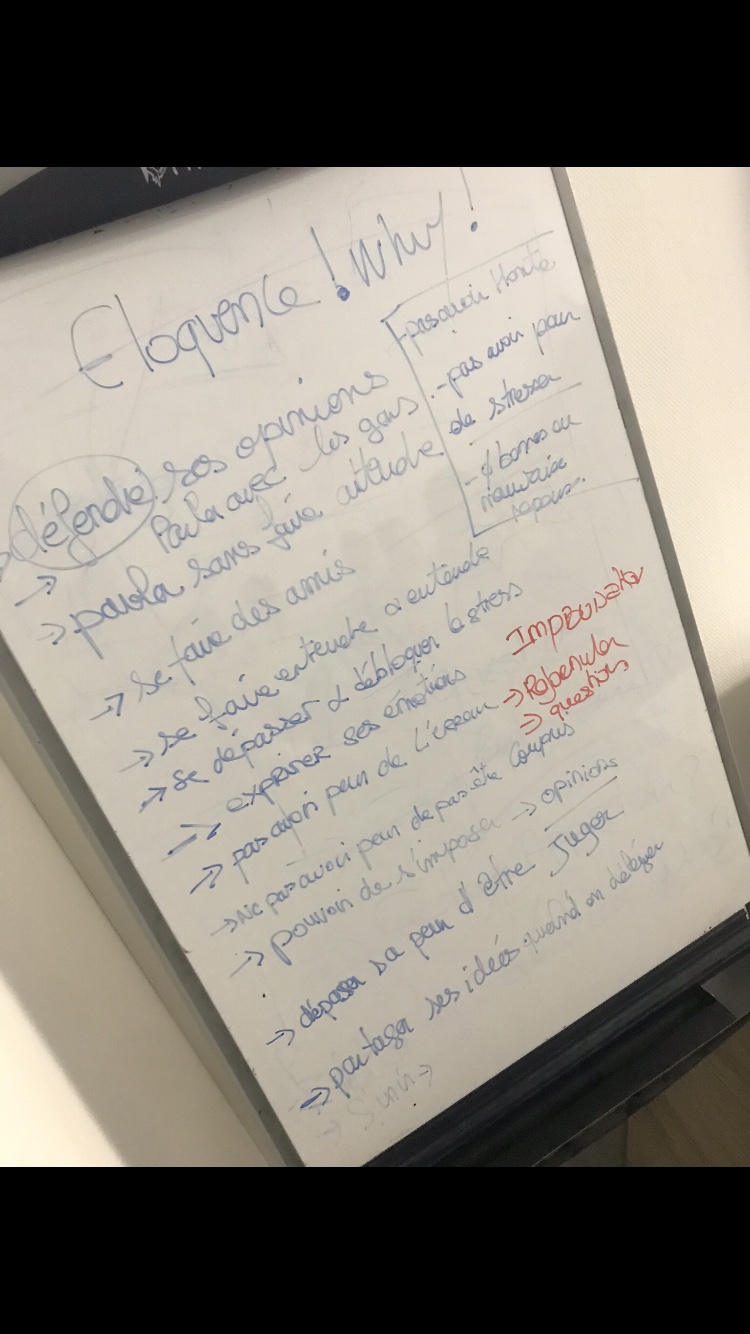 Eloquence ! Why !
-pas avoir Honte
-pas avoir peur
de stresser
- ≠ bonnes ou
mauvaise
→ défendre ses opinions
→ Parler avec les gens
→ parler sans faire entendre
→ se faire des amis
→ se faire entendre
→ se dépasser & débloquer le stress
→ exprimer ses émotions
→ pas avoir peur de
IMPROVISATION
→
→ questions
→ Ne pas avoir peur de pas être Compris
→ pouvoir de s'imposer → opinions
→ dépasser sa peur d'être Juger
→ partager ses idées quand on
→ S'unir →